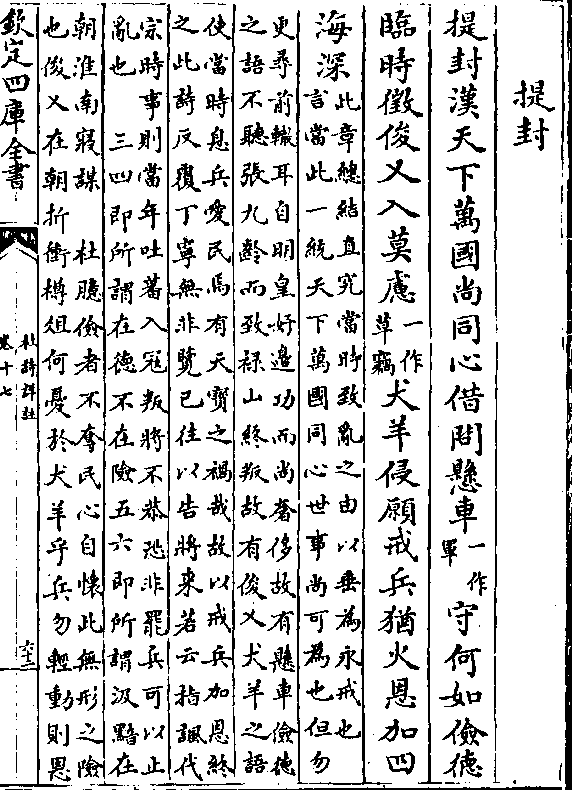 提封
提封漢天下萬國尚同心借問懸車一作軍守何如儉德
臨時徵俊乂入莫慮一作草竊犬羊侵願戒兵猶火恩加四
海深此章總結直究當時致亂之由以垂為永戒也
言當此一統天下萬國同心世事尚可為也但勿
更尋前轍耳自明皇好邊功而尚奢侈故有懸車儉德
之語不聽張九齡而致祿山終叛故有俊乂犬羊之語
使當時息兵愛民焉有天寶之禍哉故以戒兵加恩終
之此詩反覆丁寧無非覽已往以告將来若云指諷代
宗時事則當年吐蕃入冦叛將不恭恐非罷兵可以止
亂也 三四即所謂在德不在險五六即所謂汲黯在
朝淮南寢謀 杜臆儉者不奪民心自懷此無形之險
也俊乂在朝折衝樽俎何憂於犬羊乎兵勿輕動則恩
欽定四庫全書
杜詩詳註
卷十七
六十三